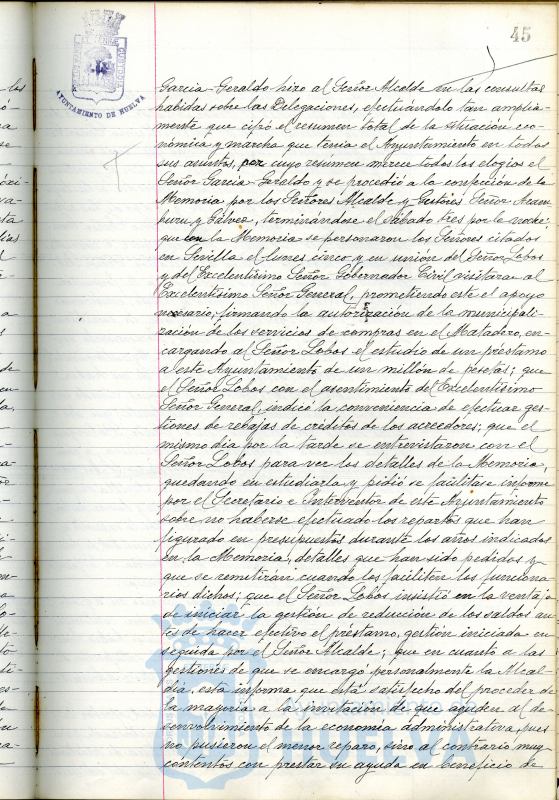 45
AYUNTAMIENTO DE HUELVA
Garcia Geraldo hizo al Señor Alcalde en las consultas
habidas sobre las Delegaciones, efectuándolo tan amplia-
mente que cifró el resumen total de la situación eco-
nómica y marcha que tenia el Ayuntamiento en todos
sus asuntos, por cuyo resúmen merece todos los elogios el
Señor Garcia Geraldo y se procedió a la confección de la
Memoria por los Señores Alcalde y Gestores Señor
buru y Gálvez, terminándose el Sábado tres por la noche;
que con la Memoria se personaron los Señores citados
en Sevilla el lunes cinco y en unión del Señor Lobos
y del Excelentísimo Señor Gobernador Civil visitaron al
Excelentísimo Señor General, prometiendo este el apoyo
necesario, firmando la autorización de la municipali-
zación de los servicios de compras en el Matadero, en-
cargando al Señor Lobos el estudio de un préstamo
a este Ayuntamiento de un millón de pesetas; que
el Señor Lobos con el asentimiento del Excelentísimo
Señor General, indicó la conveniencia de efectuar ges-
tiones de rebajas de créditos de los acreedores; que el
mismo día por la tarde se entrevistaron con el
Señor Lobos para ver los detalles de la Memoria,
quedando en estudiarla y pidió se facilitase informe
por el Secretario e Interventor de este Ayuntamiento
sobre no haberse efectuado los repartos que han
figurado en presupuestos durante los años indicados
en la Memoria, detalles que han sido pedidos y
que se remitirán cuando los faciliten los funciona-
rios dichos; que el Señor Lobos insistió en la ventaja
de iniciar la gestión de reducción de los saldos an-
tes de hacer efectivo el préstamo, gestión iniciada en
seguida por el Señor Alcalde; que en cuanto a las
gestiones de que se encargó personalmente la Alcal-
día, esta informa que está satisfecho del proceder de
la mayoría a la invitación de que ayuden al de-
senvolvimiento de la economía administrativa, pues
no pusieron el menor reparo, sino al contrario muy
contentos con prestar su ayuda en beneficio de
HUELVA